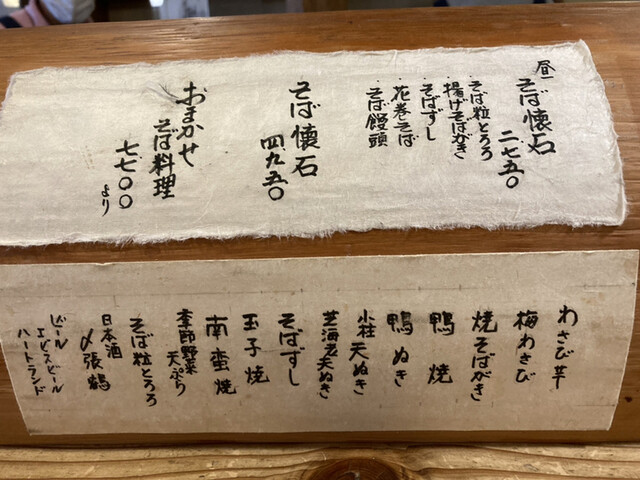 昼
そば懐石
二七五〇
・そば粒とろろ
・揚げそばがき
・そばずし
・花巻そば
・そば饅頭
そば懐石
四九五〇
おまかせ
そば料理
七七〇〇
より
わさび芋
梅わさび
焼そばがき
鴨焼
鴨ぬき
小柱天ぬき
芝海老天ぬき
そばずし
玉子焼
南蛮焼
季節野菜
天ぷら
そば粒とろろ
日本酒
〆張鶴
ビール
エビスビール
ハートランド